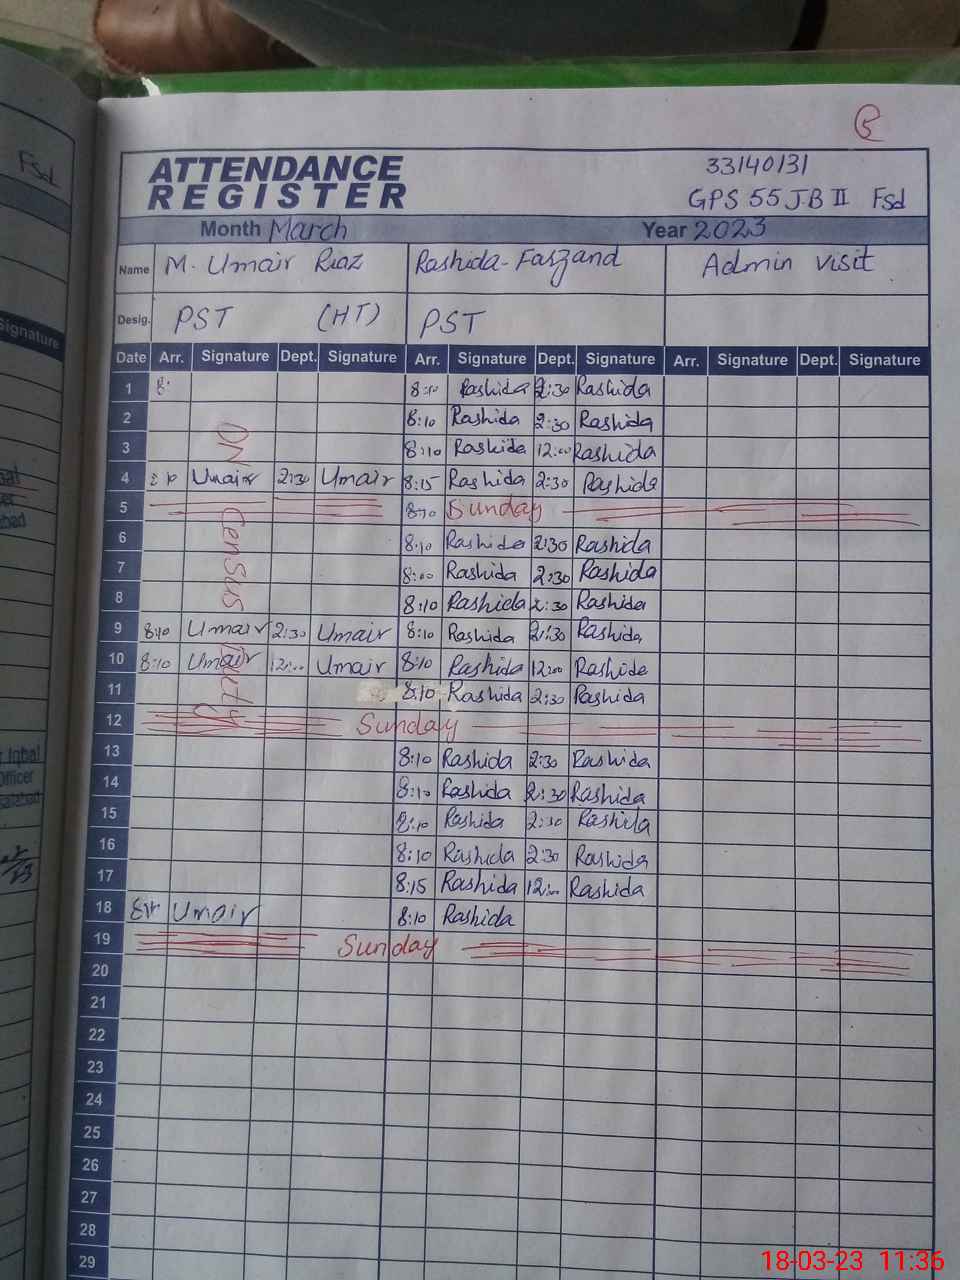 Fsd
33140131
ATTENDANCE
REGISTER
GPS 55 J-B II Fsd
Month March Year 2023
Name M. Umair Riaz Rashida-Farzand Admin visit
Desig. PST (HT) PST
Signature
Date Arr. Signature Dept. Signature Arr. Signature Dept. Signature Arr. Signature Dept. Signature
1 8: 8:10 Rashida 2:30 Rashida
2 8:10 Rashida 2:30 Rashida
3 8:10 Rashida 12:00 Rashida
4 8:10 Umair 2:30 Umair 8:15 Rashida 2:30 Rashida
5 8:10 Sunday
6 8:10 Rashida 2:30 Rashida
7 8:00 Rashida 2:30 Rashida
8 8:10 Rashida 2:30 Rashida
9 8:10 Umair 2:30 Umair 8:10 Rashida 2:30 Rashida
10 8:10 Umair 12:00 Umair 8:10 Rashida 12:00 Rashida
11 8:10 Rashida 2:30 Rashida
ON Census Duty
12 Sunday
13 8:10 Rashida 2:30 Rashida
14 8:10 Rashida 2:30 Rashida
15 8:10 Rashida 2:30 Rashida
16 8:10 Rashida 2:30 Rashida
17 8:15 Rashida 12:00 Rashida
18 Umair 8:10 Rashida
19 Sunday
20
21
22
23
24
25
26
27
28
29
Iqbal
Officer
18-03-23 11:36